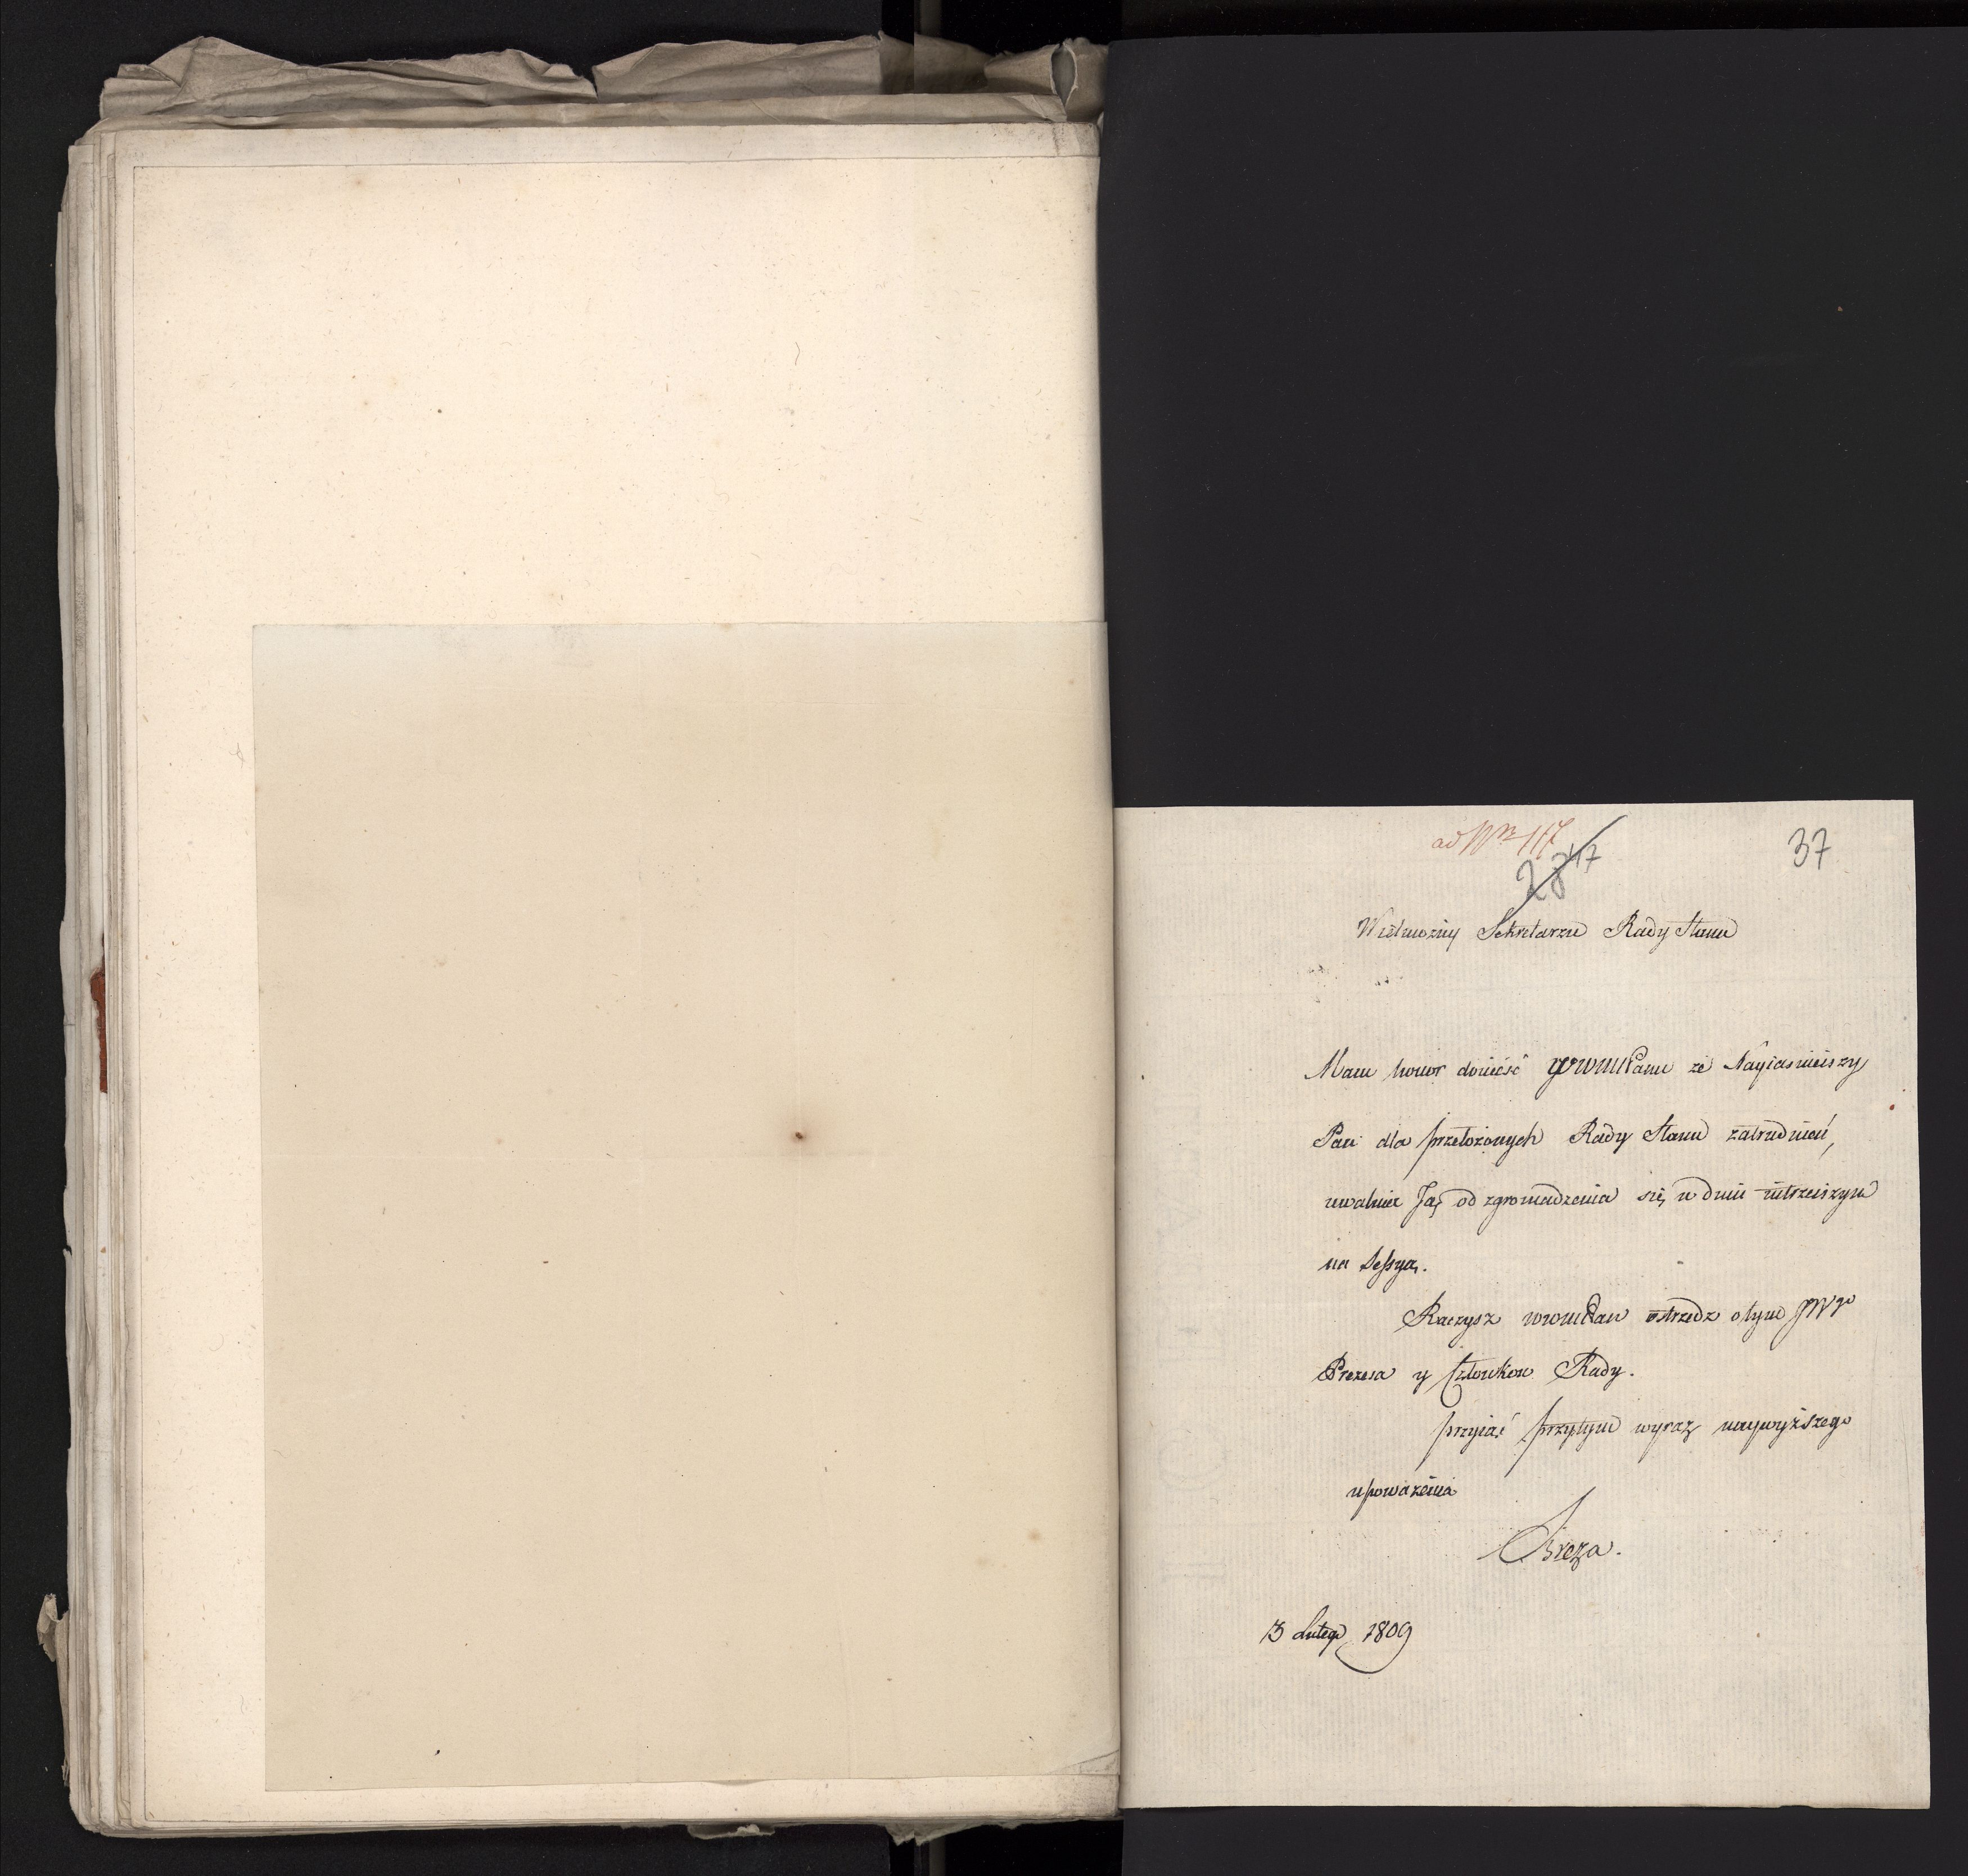 ad Nr 117
37
Wielmożny Sekretarzu Rady Stanu
Mam honor donieść WWmPanu że Nayiasnieiszy
Pan dla przełożonych Rady Stanu zatrudnień,
uwalnia Ją od zgromadzenia się w dniu iutrzeiszym
na Sessyą.
Raczysz WWmPan ostrzedz o tym JWgo
Prezesa y Członkow Rady.
przyiąć przytym wyraz naywyższego
upoważenia
Breza.
3 Lutego 1809